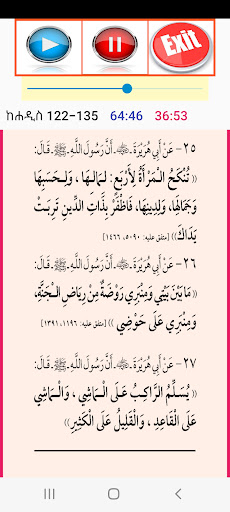 Exit
ከሐዲስ 122-135 64:46 36:53
٢٥ - عَنْ أَبِي هُرَيْرَةَ ـ ﷺ ـ أَنَّ رَسُولَ اللَّهِ ـ ﷺ ـ قَالَ:
(( تُنْكَحُ الْمَرْأَةُ لِأَرْبَعٍ: لِمَالِهَا، وَلِحَسَبِهَا
وَجَمَالِهَا، وَلِدِينِهَا، فَاظْفَرْ بِذَاتِ الدِّينِ تَرِبَتْ
يَدَاكَ)) [متفق عليه: ٥٠٩٠، ١٤٦٦]
٢٦ - عَنْ أَبِي هُرَيْرَةَ ـ ـ أَنَّ رَسُولَ اللَّهِ ـ ﷺ ـ قَالَ:
(( مَا بَيْنَ بَيْتِي وَمِنْبَرِي رَوْضَةٌ مِنْ رِيَاضِ الْجَنَّةِ،
وَمِنْبَرِي عَلَى حَوْضِي )) [متفق عليه: ١١٩٦، ١٣٩١]
٢٧ - عَنْ أَبِي هُرَيْرَةَ ـ ـ أَنَّ رَسُولَ اللَّهِ ـ ﷺ ـ قَالَ:
(( يُسَلِّمُ الرَّاكِبُ عَلَى الْمَاشِي ، وَالْمَاشِي
عَلَى الْقَاعِدِ ، وَالْقَلِيلُ عَلَى الْكَثِيرِ))